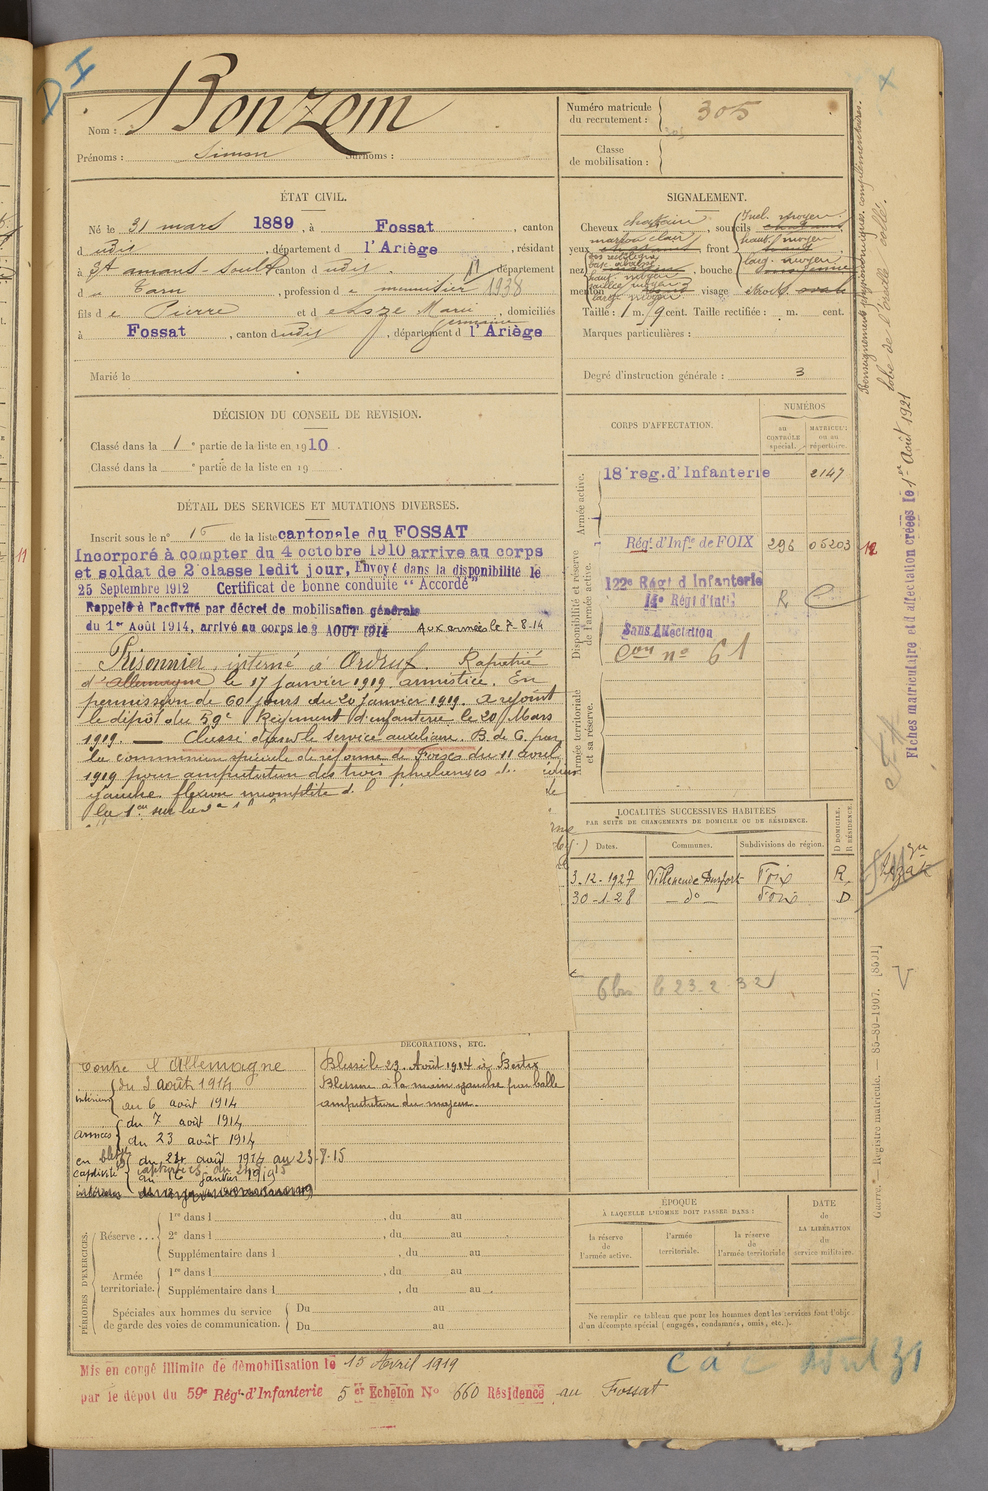 D I
Nom : Bonzom
Prénoms : Simon Surnoms :
Numéro matricule du recrutement : 305
Classe de mobilisation :
ÉTAT CIVIL.
Né le 31 mars 1889, à Fossat, canton
d udit, département d l'Ariège, résidant
à St amans-Soult canton d udit, département
d u Tarn, profession d e menuisier 1938
fils d e Pierre et d Marie, domiciliés
Germaine
à Fossat, canton dudit, département d l'Ariège
Marié le
SIGNALEMENT.
Cheveux chatain, sourcils
Incl. moyen
yeux marron clair front haut. moyen
larg. moyen
nez dos rectiligne , bouche
base abaissé
haut. moyen
saillie moyen
menton larg. moyen visage étroit ovale
Taille : 1 m. cent. Taille rectifiée : m. cent.
Marques particulières :
Degré d'instruction générale : 3
DÉCISION DU CONSEIL DE RÉVISION.
Classé dans la 1e partie de la liste en 1910
Classé dans la e partie de la liste en 19
CORPS D'AFFECTATION.
NUMÉROS
au CONTRÔLE spécial.
MATRICULE ou au répertoire.
Armée active.
18e reg. d'Infanterie 2147
Disponibilité et réserve de l'armée active.
Régt d'Infie de FOIX 296 05203 12
122e Régt d'Infanterie
14e Régt d'Infie R
Sans Affectation
Con no 61
Armée territoriale et sa réserve.
DÉTAIL DES SERVICES ET MUTATIONS DIVERSES.
Inscrit sous le no 16 de la liste cantonale du FOSSAT
Incorporé à compter du 4 octobre 1910 arrive au corps
et soldat de 2e classe ledit jour, Envoyé dans la disponibilité le
25 Septembre 1912 Certificat de bonne conduite "Accordé"
Rappelé à l'activité par décret de mobilisation générale
du 1er Août 1914, arrivé au corps le 3 AOUT 1914 Aux armées le 7-8-14
Prisonnier, interné à Ordruf. Rapatrié
d'Allemagne le 17 janvier 1919. armistice. En
permission de 60 jours du 20 janvier 1919. A rejoint
le dépôt du 59e Régiment d'infanterie le 20 Mars
1919. — Classé dans le service auxiliaire. B. de G. par
la commission spéciale de réforme de Foix du 11 avril
1919 pour amputation des trois phalanges
gauche. flexion incomplète d
la 1ere sur la 2e
LOCALITÉS SUCCESSIVES HABITÉES
PAR SUITE DE CHANGEMENTS DE DOMICILE OU DE RÉSIDENCE.
Dates. Communes. Subdivisions de région. D DOMICILE. R RÉSIDENCE.
3.12.1927 Villeneuve Durfort Foix R
30-1-28 — do — Foix D
6 le 23-2-32
DÉCORATIONS, ETC.
Contre l'Allemagne
intérieur du 3 août 1914
au 6 août 1914
armées du 7 août 1914
du 23 août 1914
en captivité du 24 août 1914 au 23-7-15
au 16 janvier 1919
Blessé le 23 Août 1914 à Bertrix
Blessure à la main gauche par balle
amputation du majeur.
PÉRIODES D'EXERCICES.
Réserve ... 1re dans l , du au
2e dans l , du au
Supplémentaire dans l , du au
Armée territoriale. 1re dans l , du au
Supplémentaire dans l , du au
Spéciales aux hommes du service de garde des voies de communication. Du au
Du au
ÉPOQUE
À LAQUELLE L'HOMME DOIT PASSER DANS :
la réserve de l'armée active.
l'armée territoriale.
la réserve de l'armée territoriale
DATE de LA LIBÉRATION du service militaire.
Ne remplir ce tableau que pour les hommes dont les services font l'objet
d'un décompte spécial (engagés, condamnés, omis, etc.).
Mis en congé illimité de démobilisation le 15 Avril 1919
par le dépôt du 59e Régt d'Infanterie 5er Echelon No 660 Résidence au Fossat
Renseignements physionomiques complémentaires.
lobe de l'oreille collé.
Fiches matriculaire et d'affectation créées le 1er Août 1921
Guerre. — Registre matricule. — 85-80-1907. [8501]